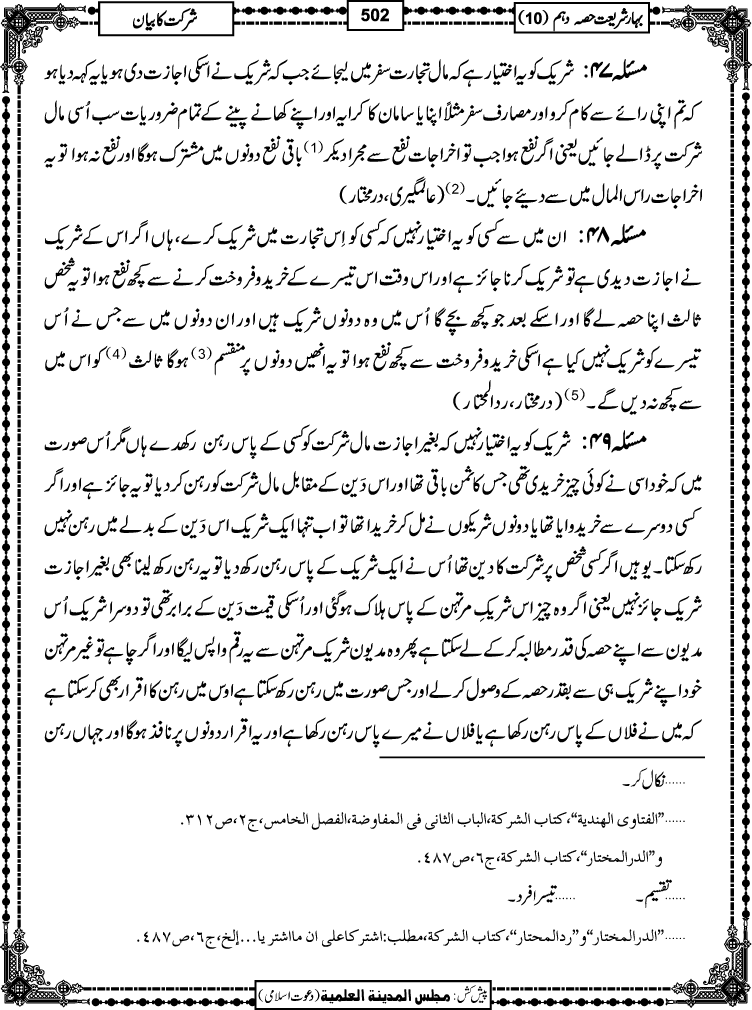 بہارشریعت حصہ دہم (10)
502
شرکت کا بیان
مسئلہ ۴۷: شریک کو یہ اختیار ہے کہ مال تجارت سفر میں لیجائے جب کہ شریک نے اسکی اجازت دی ہو یا یہ کہہ دیا ہو
کہ تم اپنی رائے سے کام کرو اور مصارف سفر مثلاً اپنا یا سامان کا کرایہ اور اپنے کھانے پینے کے تمام ضروریات سب اُسی مال
شرکت پر ڈالے جائیں یعنی اگر نفع ہوا جب تو اخراجات نفع سے مجرا دیکر (1) باقی نفع دونوں میں مشترک ہوگا اور نفع نہ ہوا تو یہ
اخراجات راس المال میں سے دیئے جائیں۔ (2) (عالمگیری، درمختار)
مسئلہ ۴۸: ان میں سے کسی کو یہ اختیار نہیں کہ کسی کو اِس تجارت میں شریک کرے، ہاں اگر اس کے شریک
نے اجازت دیدی ہے تو شریک کرنا جائز ہے اور اس وقت اس تیسرے کے خرید و فروخت کرنے سے کچھ نفع ہوا تو یہ شخص
ثالث اپنا حصہ لے گا اور اسکے بعد جو کچھ بچے گا اُس میں وہ دونوں شریک ہیں اور ان دونوں میں سے جس نے اُس
تیسرے کو شریک نہیں کیا ہے اسکی خرید و فروخت سے کچھ نفع ہوا تو یہ انھیں دونوں پر منقسم (3) ہوگا ثالث (4) کو اس میں
سے کچھ نہ دیں گے۔ (5) (درمختار، ردالمحتار)
مسئلہ ۴۹: شریک کو یہ اختیار نہیں کہ بغیر اجازت مال شرکت کو کسی کے پاس رہن رکھدے ہاں مگر اُس صورت
میں کہ خود اسی نے کوئی چیز خریدی تھی جس کا ثمن باقی تھا اور اس دَین کے مقابل مال شرکت کو رہن کر دیا تو یہ جائز ہے اور اگر
کسی دوسرے سے خریدوایا تھا یا دونوں شریکوں نے مل کر خریدا تھا تو اب تنہا ایک شریک اس دَین کے بدلے میں رہن نہیں
رکھ سکتا۔ یوہیں اگر کسی شخص پر شرکت کا دین تھا اُس نے ایک شریک کے پاس رہن رکھ دیا تو یہ رہن رکھ لینا بھی بغیر اجازت
شریک جائز نہیں یعنی اگر وہ چیز اس شریکِ مرتہن کے پاس ہلاک ہوگئی اور اُسکی قیمت دَین کے برابر تھی تو دوسرا شریک اُس
مدیون سے اپنے حصہ کی قدر مطالبہ کر کے لے سکتا ہے پھر وہ مدیون شریک مرتہن سے یہ رقم واپس لیگا اور اگر چاہے تو غیر مرتہن
خود اپنے شریک ہی سے بقدر حصہ کے وصول کر لے اور جس صورت میں رہن رکھ سکتا ہے اوس میں رہن کا اقرار بھی کر سکتا ہے
کہ میں نے فلاں کے پاس رہن رکھا ہے یا فلاں نے میرے پاس رہن رکھا ہے اور یہ اقرار دونوں پر نافذ ہوگا اور جہاں رہن
......نکال کر۔
......”الفتاوی الھندیة“، کتاب الشرکة، الباب الثانی فی المفاوضة، الفصل الخامس، ج۲، ص۳۱۲.
و”الدرالمختار“، کتاب الشرکة، ج٦، ص٤٨٧.
......تقسیم۔ ......تیسرا فرد۔
......”الدرالمختار“و”ردالمحتار“، کتاب الشرکة، مطلب: اشترکا علی ان ما اشتریا...إلخ، ج٦، ص٤٨٧.
پیش کش: مجلس المدینة العلمیة (دعوت اسلامی)